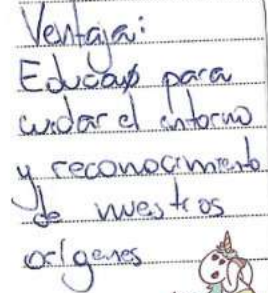 Ventaja:
Educar para
cuidar el entorno
y reconocimiento
de nuestros
orígenes